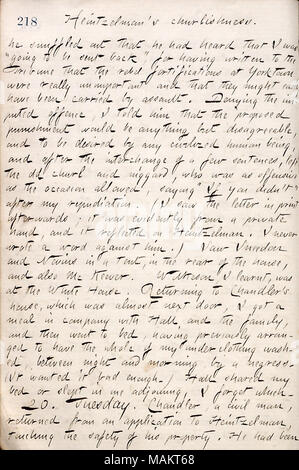 218
Heintzelman's churlishness.
he snuffled out that he had heard that I was
"going to be sent back" for having written to the
Tribune that the rebel fortifications at Yorktown
were really unimportant and that they might easily
have been carried by assault. Denying the im-
puted offence, I told him that the proposed
punishment would be anything but disagreeable
and to be desired by any civilized human being,
and after the interchange of a few sentences, left
the old churl and niggard, who was as offensive
as the occasion allowed, saying "If you didn't"
after my repudiation. (I saw the letter in print
afterwards; it was evidently from a private
hand, and it reflected on Heintzelman. I never
wrote a word against him.) Saw
and in a tent, in the rear of the house,
and also Mc Kever. I learnt, was
at the White House. Returning to Chandler's
house, which was almost next door, I got a
meal in company with Hall and the family,
and then went to bed, having previously arran-
ged to have the whole of my underclothing washed
between night and morning by a negress.
It wanted it bad enough. Hall shared my
bed or slept in one adjoining, I forget which.
20. Tuesday. Chandler, a civil man,
returned from an application to Heintzelman,
touching the safety of his property. He had been
alamy
Image ID: MAKT68
www.alamy.com